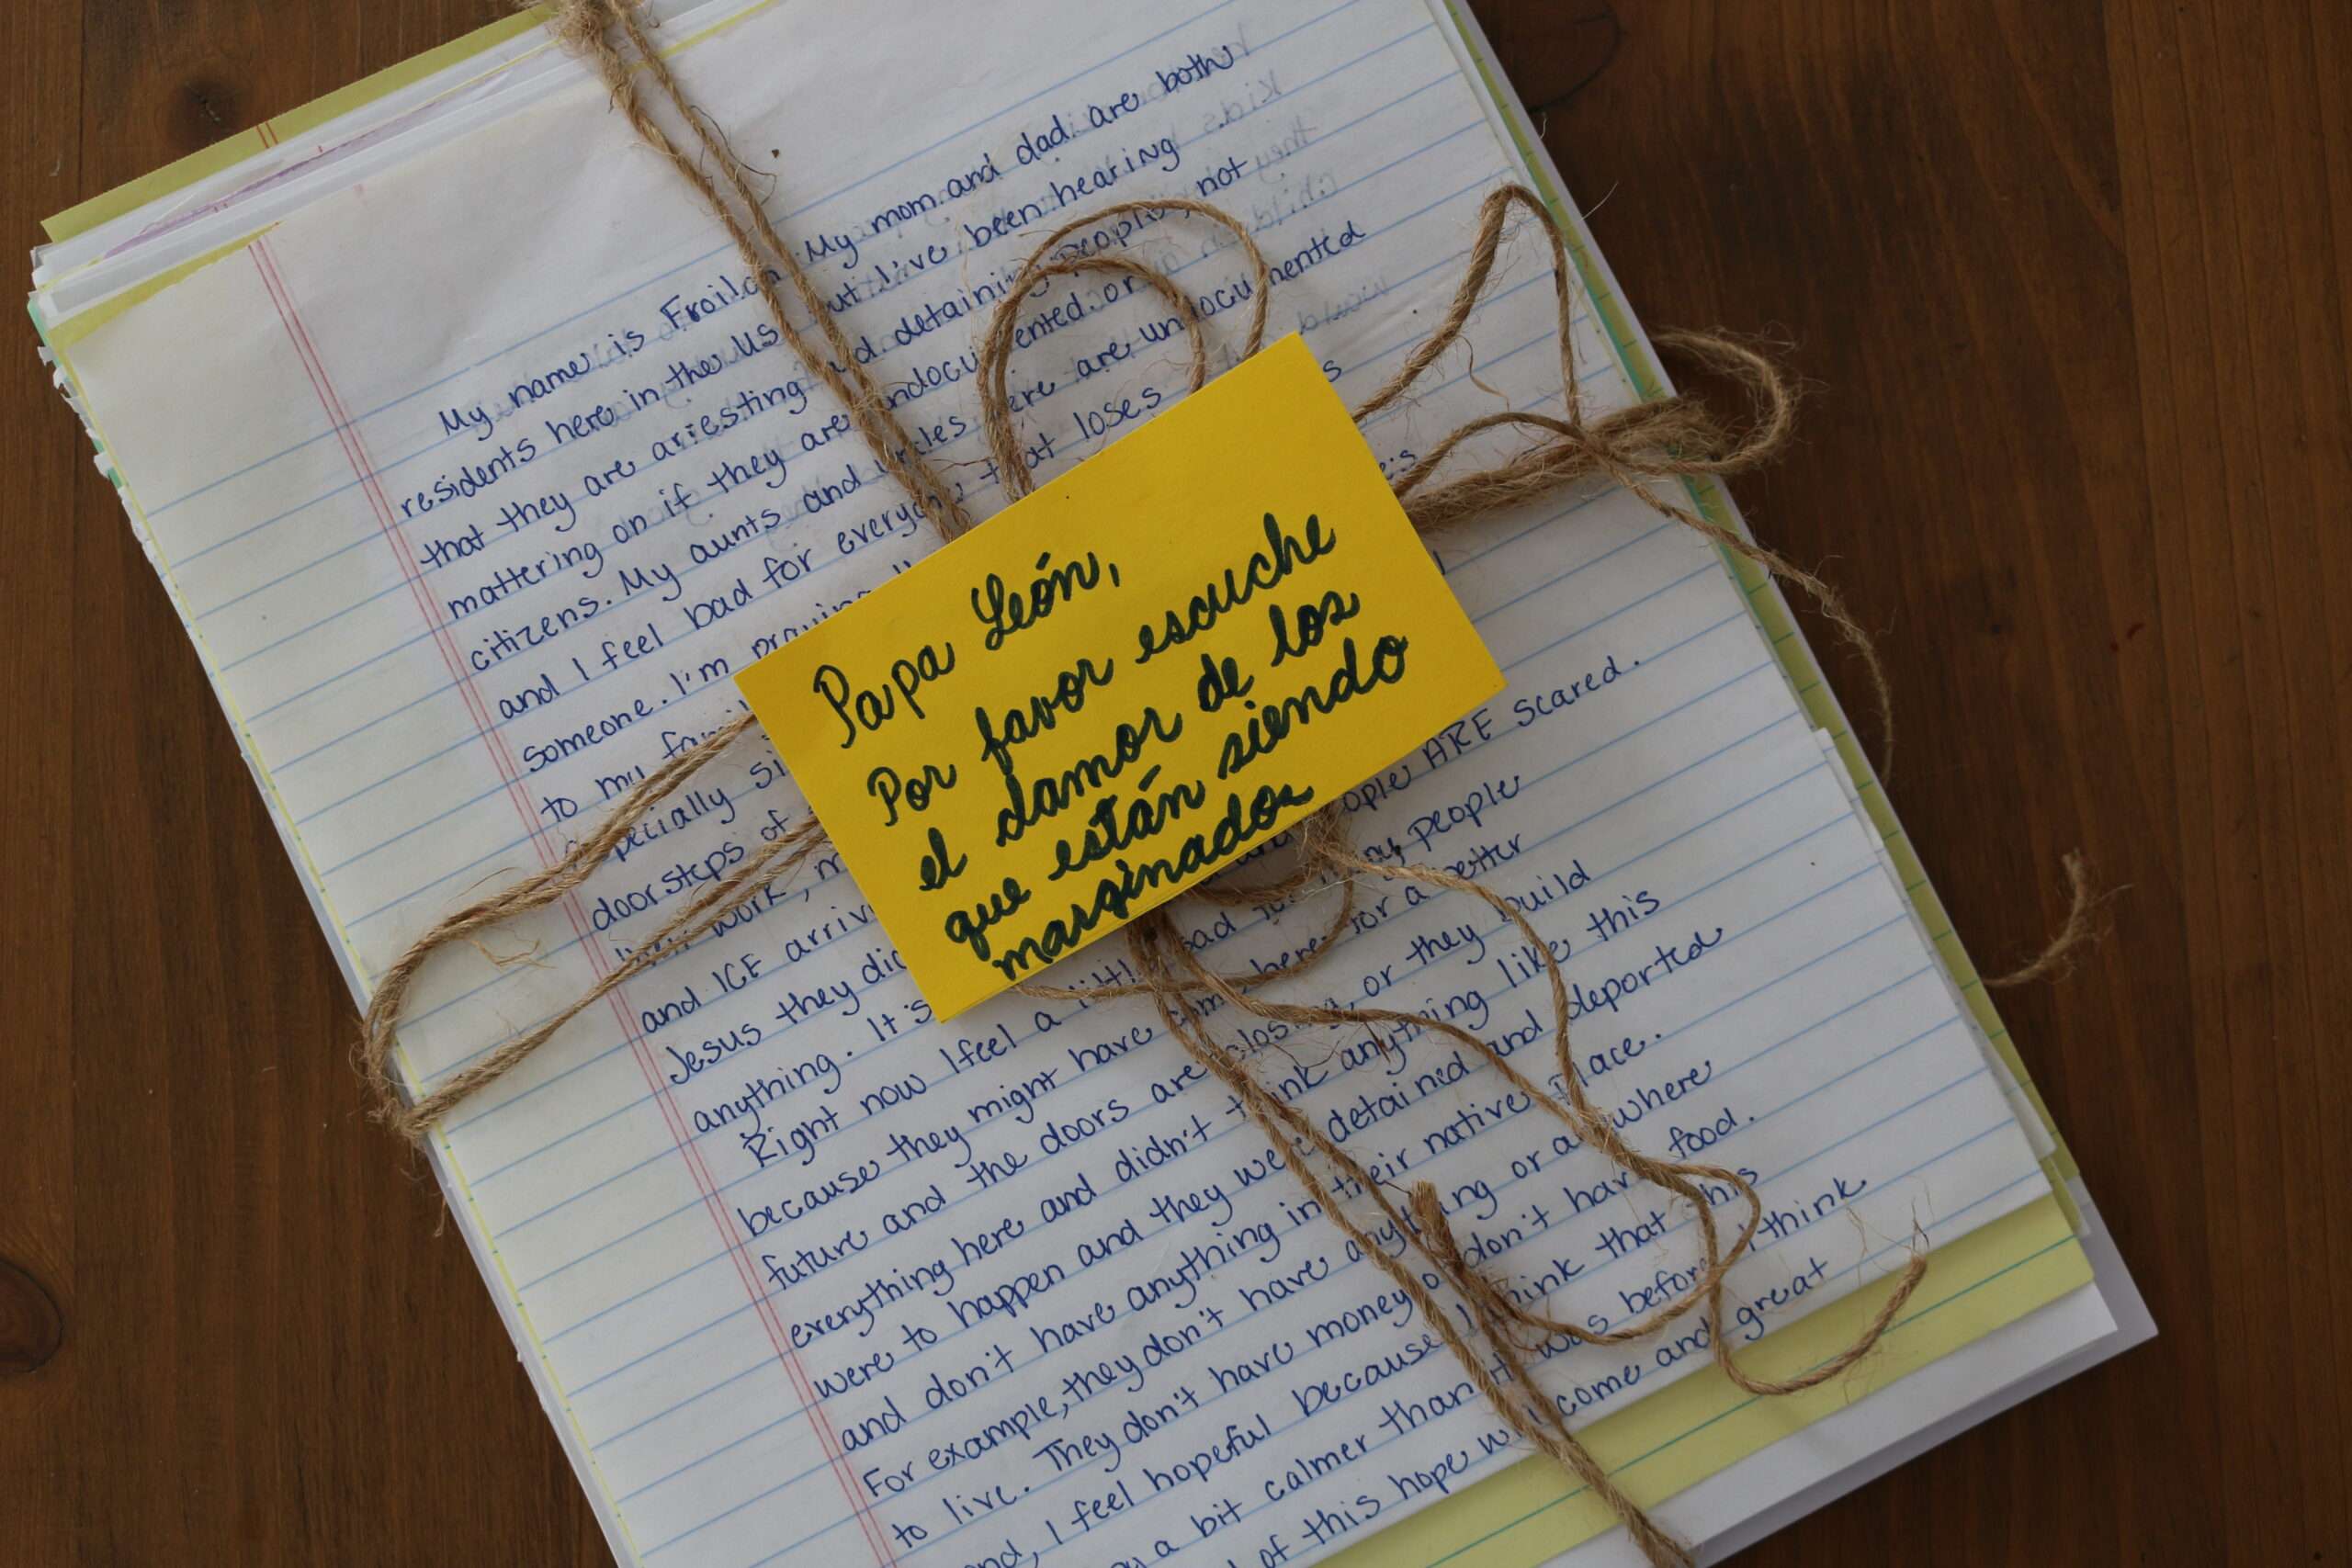 My name is Froilan. My mom and dad are both
residents here in the US but I've been hearing
that they are arresting and detaining people not
mattering on if they are undocumented or
citizens. My aunts and uncles here are undocumented
and I feel bad for everyone that loses
someone. I'm praying
to my
especially
doorsteps of
their work,
and ICE
Jesus they
anything. It's
people ARE scared.
Right now I feel a little sad for many people
because they might have come here for a better
future and the doors are closing, or they build
everything here and didn't think anything like this
were to happen and they were detained and deported
and don't have anything in their native place.
For example, they don't have anything or anywhere
to live. They don't have money or don't have food.
I feel hopeful because I think that this
a bit calmer than it was before. I think
of this hope will come and great
Papa León,
Por favor escuche
el clamor de los
que están siendo
marginados